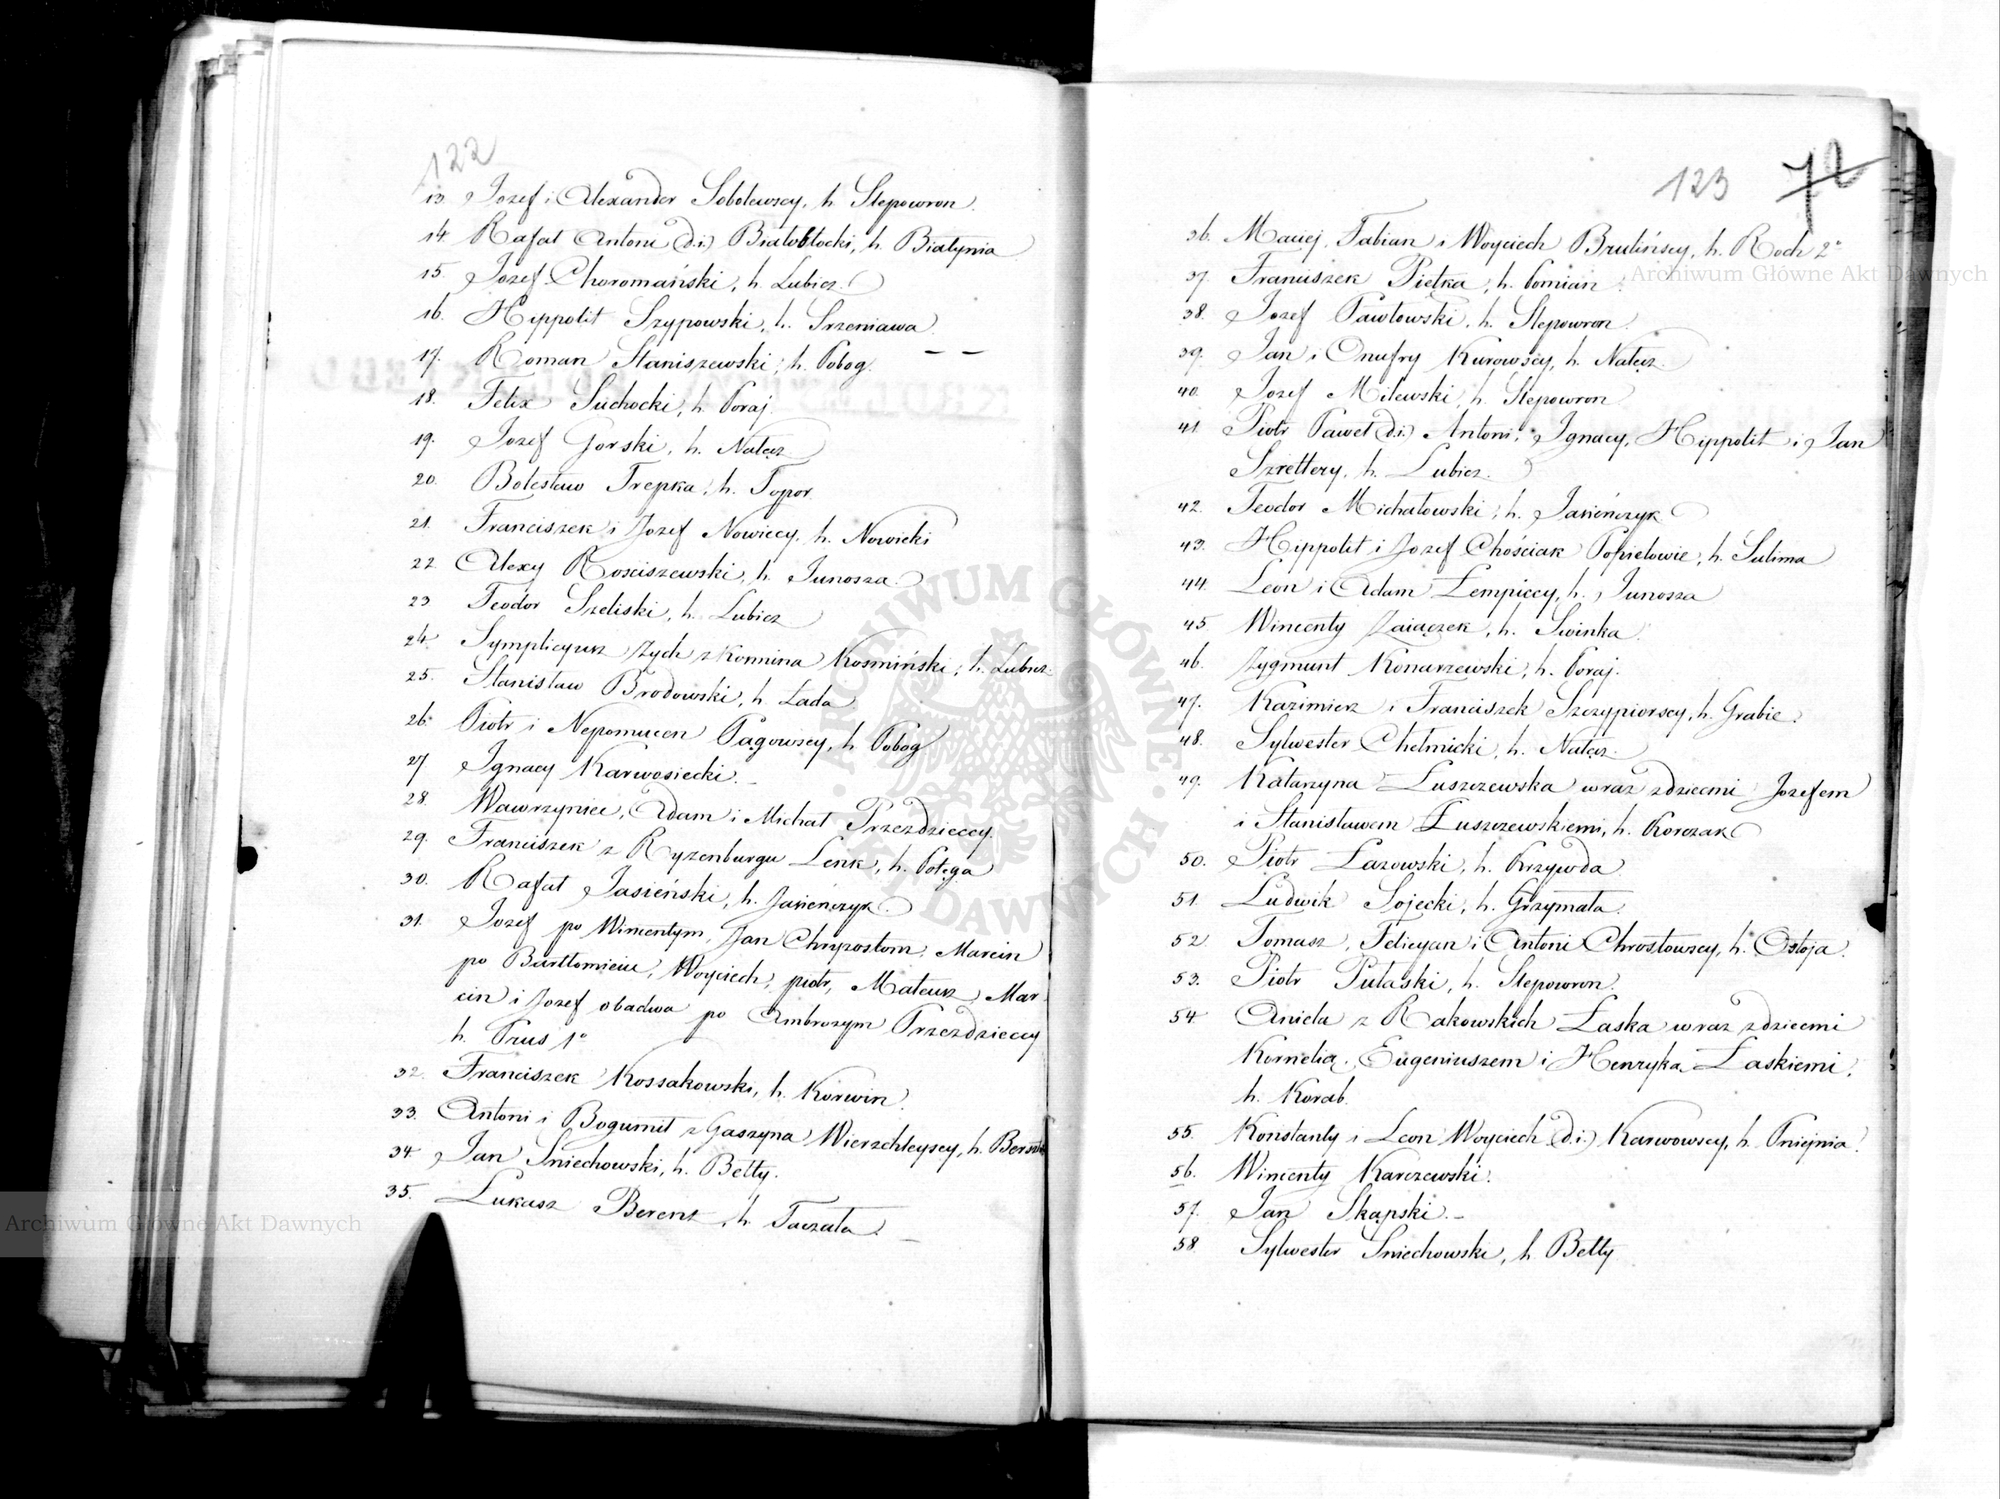 122
13. Jozef i Alexander Sobolewscy, h. Slepowron.
14. Rafał Antoni (d.i.) Białobłocki, h. Białynia
15. Jozef Choromański, h. Lubicz.
16. Hippolit Szypowski, h. Srzeniawa.
17. Roman Staniszewski, h. Pobog.
18. Felix Suchocki, h. Poraj.
19. Jozef Gorski, h. Nałęcz
20. Bolesław Trepka, h. Topor.
21. Franciszek i Jozef Nowiccy, h. Nowicki
22. Alexy Rosciszewski, h. Junosza.
23. Teodor Szeliski, h. Lubicz
24. Symplicyusz Zych z Konnina Kosmiński, h. Lubicz
25. Stanisław Brodowski, h. Łada
26. Piotr i Nepomucen Pągowscy, h. Pobog
27. Ignacy Karwosiecki. –
28. Wawrzyniec, Adam i Michał Przezdzieccy.
29. Franciszek z Ryzenburgu Lenk, h. Potęga
30. Rafał Jasieński, h. Jasieńczyk.
31. Jozef po Wincentym, Jan Chryzostom, Marcin
po Bartłomieiu, Woyciech, piotr, Mateusz, Mar-
cin i Jozef obadwa po Ambrozym Przezdzieccy
h. Prus 1o
32. Franciszek Kossakowski, h. Korwin.
33. Antoni i Bogumił z Gaszyna Wierzchleyscy, h.
34. Jan Sniechowski, h. Betty.
35. Łukasz Berent, h. Taczała. –
123 72
36. Maciej, Fabian i Woyciech Brulińscy, h. Roch 2o
Archiwum Główne Akt Dawnych
37. Franciszek Piętka, h. Pomian.
38. Jozef Pawłowski, h. Slepowron.
39. Jan i Onufry Kurowscy, h. Nałęcz.
40. Jozef Milewski, h. Slepowron
41. Piotr Paweł (d.i.) Antoni, Ignacy, Hippolit i Jan
Szrettery, h. Lubicz.
42. Teodor Michałowski, h. Jasieńczyk
43. Hippolit i Jozef Chościak Popielowie, h. Sulima
44. Leon i Adam Łempiccy, h. Junosza
45. Wincenty Zaiączek, h. Swinka.
46. Zygmunt Konarzewski, h. Poraj.
47. Kazimierz i Franciszek Szczypiorscy, h. Grabie.
48. Sylwester Chełmicki, h. Nałęcz.
49. Katarzyna Łuszczewska wraz z dziećmi Jozefem
i Stanisławem Łuszczewskiemi, h. Korczak
50. Piotr Łazowski, h. Krzywda
51. Ludwik Sojecki, h. Grzymała.
52. Tomasz, Felicyan i Antoni Chrostowscy, h. Ostoja.
53. Piotr Pułaski, h. Slepowron.
54. Aniela z Rakowskich Łaska wraz z dziećmi
Kornelią, Eugeniuszem i Henryką Łaskiemi,
h. Korab.
55. Konstanty i Leon Woyciech (d.i.) Karwowscy, h. Pniejnia.
56. Wincenty Karczewski.
57. Jan Skąpski. –
58. Sylwester Sniechowski, h. Betty
ARCHIWUM GŁÓWNE AKT DAWNYCH
Archiwum Główne Akt Dawnych